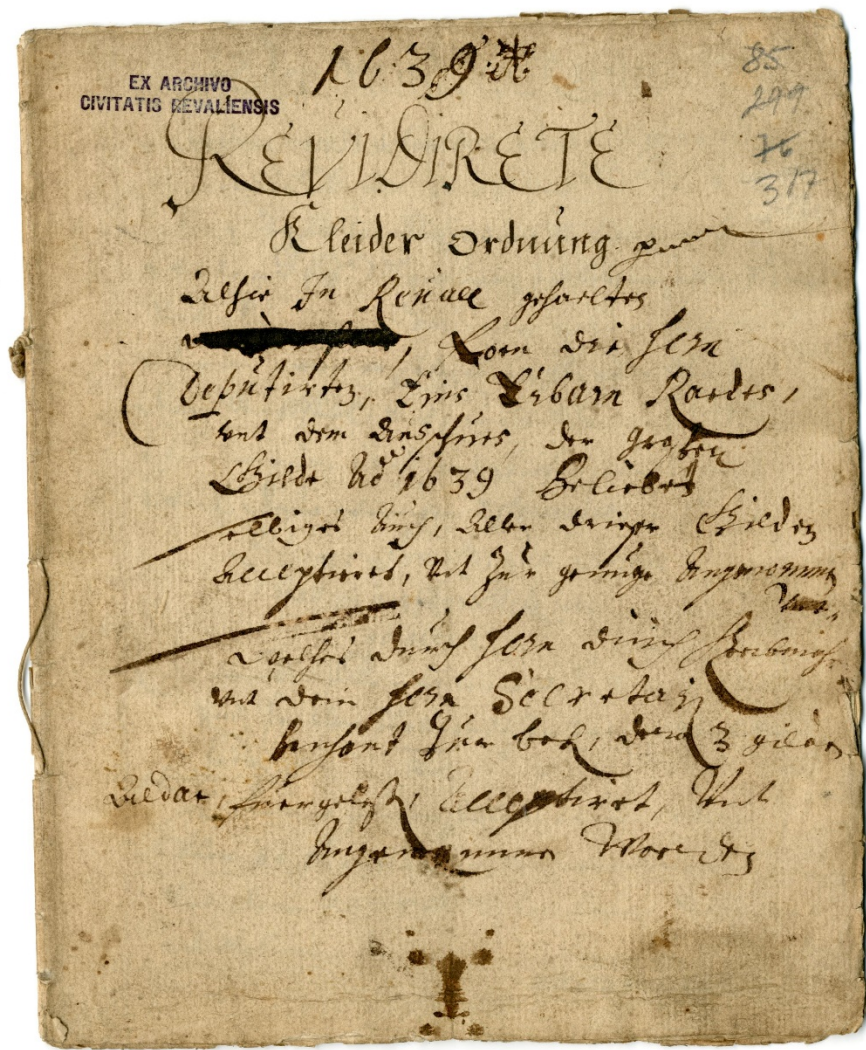 1639
EX ARCHIVO
CIVITATIS REVALIENSIS
85
299
76
317
REVIDIRETE
Kleider Ordnung
Alhie In Reuall gehaelten
die Hern
Deputirten, Eins Erbarn Raedes,
vnt dem Ausschues, der groten
Gilde Aº 1639 Beliebet
selbiges Auch, Aller dreyer Gilden
Acceptiret, vnt Zur genuge Angenommen
Welches durch Hern
vnt dem Hern Secretari
der 3 gilden
Aldar, fuergelesen, Acceptiret, Vnt
Angenommen Worden